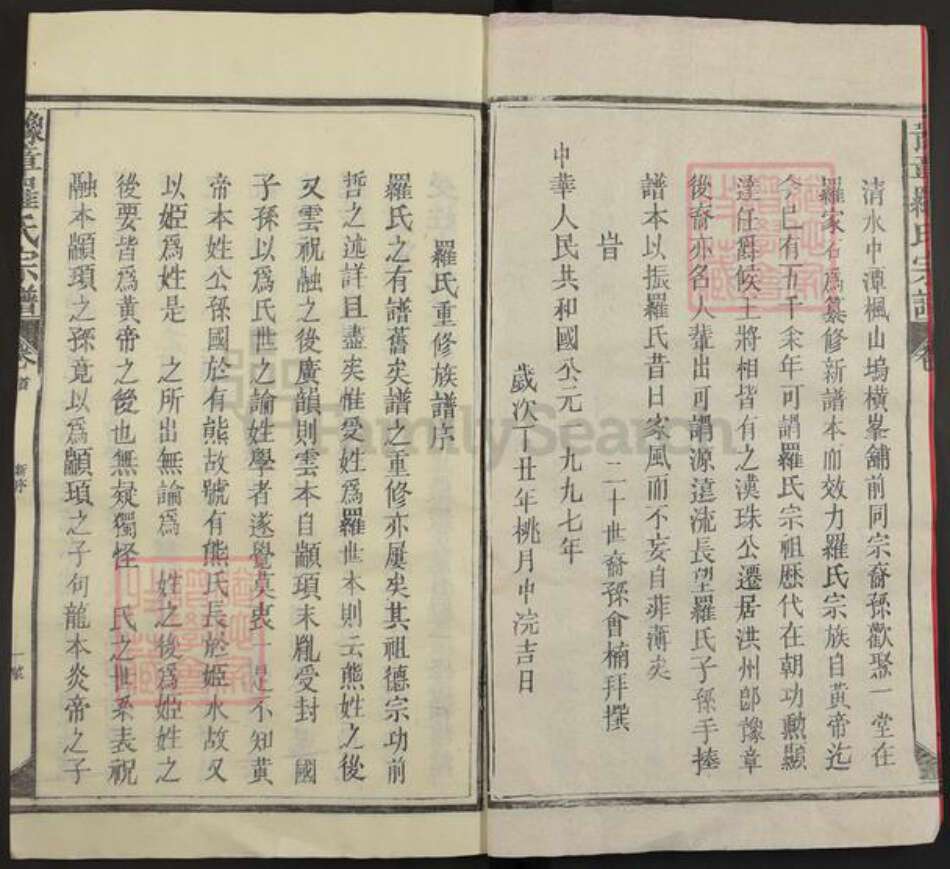 清水中潭楓山塢橫峯舖前同宗裔孫歡聚一堂在
羅家石爲纂修新譜本而效力羅氏宗族自黃帝迄
今已有五千余年可謂羅氏宗祖歷代在朝功勳顯
達任爵候王將相皆有之漢珠公遷居洪州郎豫章
後裔亦名人輩出可謂源遠流長望羅氏子孫手捧
譜本以振羅氏昔日家風而不妄自菲薄矣
旹
二十世裔孫會楠拜撰
中華人民共和國公元一九九七年
歲次丁丑年桃月中浣吉日
豫章羅氏宗譜
卷首
新序
羅氏重修族譜序
羅氏之有譜舊矣譜之重修亦屢矣其祖德宗功前
哲之述詳且盡矣惟受姓爲羅世本則云熊姓之後
又雲祝融之後廣韻則雲本自顓頊末胤受封 國
子孫以爲氏世之論姓學者遂覺莫衷一是不知黃
帝本姓公孫國於有熊故號有熊氏長於姬水故又
以姬爲姓是 之所出無論爲 姓之後爲姬姓之
後要皆爲黃帝之後也無疑獨怪 氏之世系表祝
融本顓頊之孫竟以爲顓頊之子句龍本炎帝之子
豫章羅氏宗譜
卷
FamilySearch